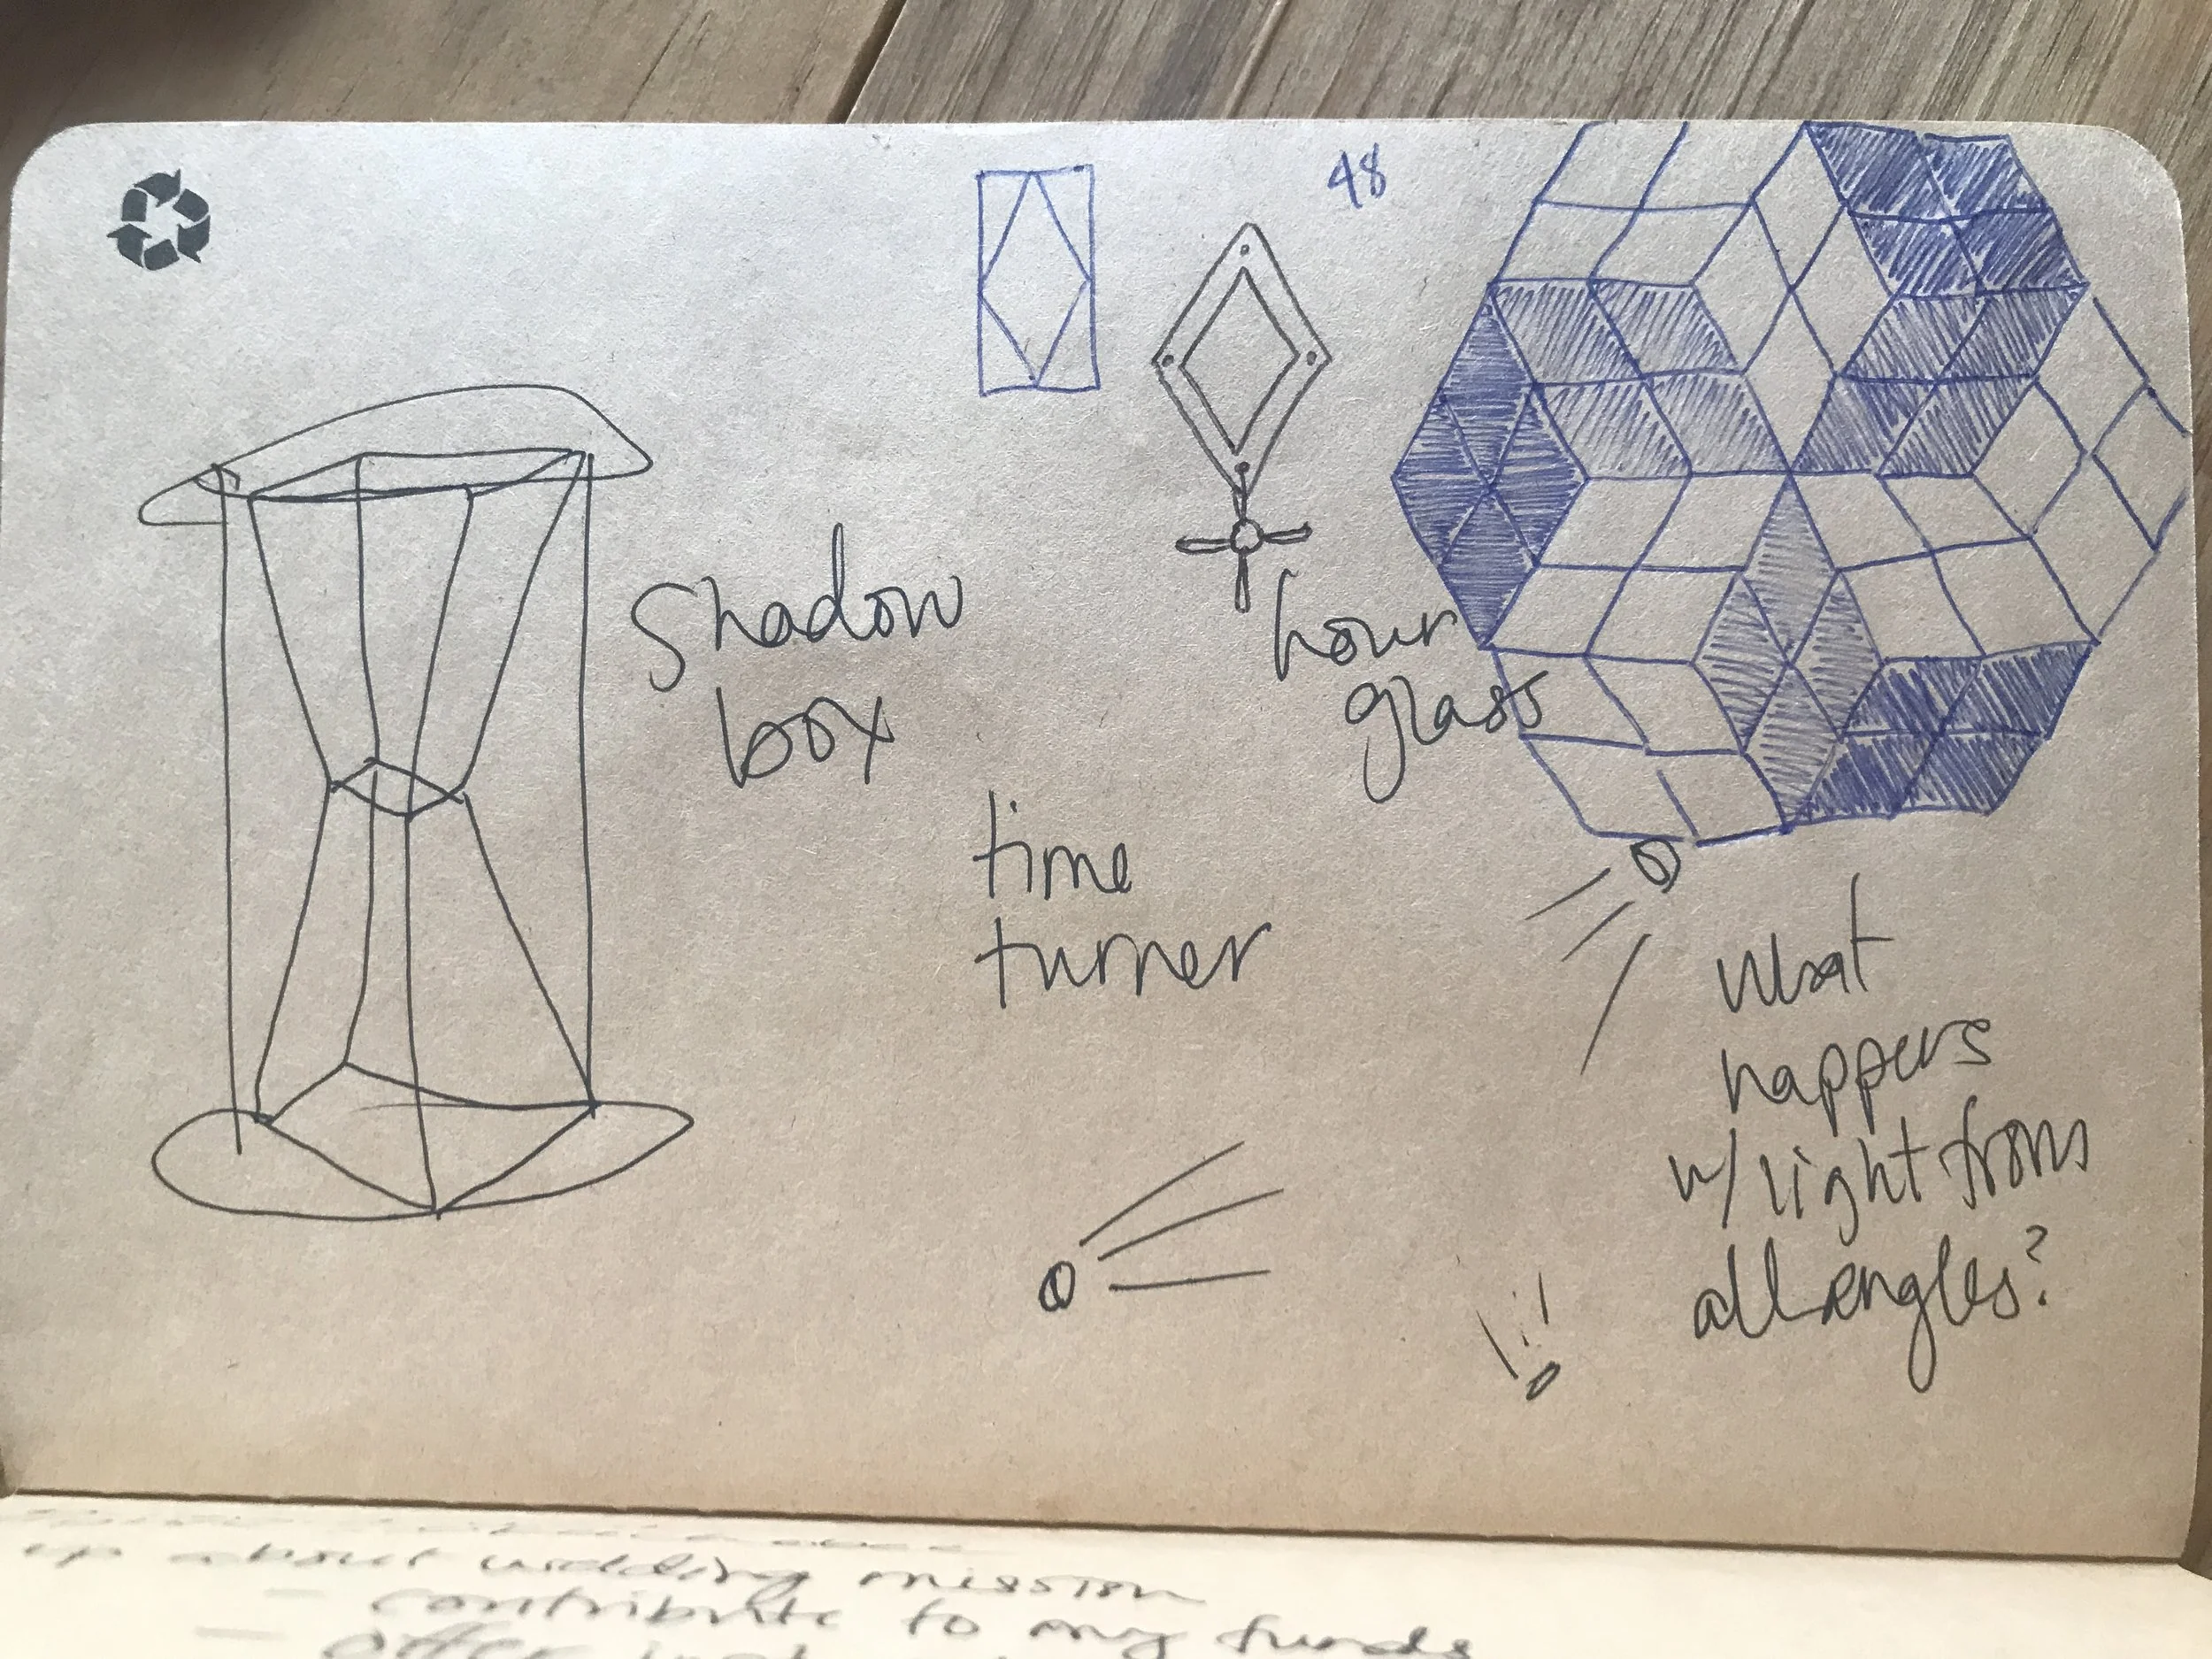 48
Shadow
box
hour
glass
time
turner
What
happens
w/ light from
all angles?
up about wedding mission
- contribute to my funds
- offer